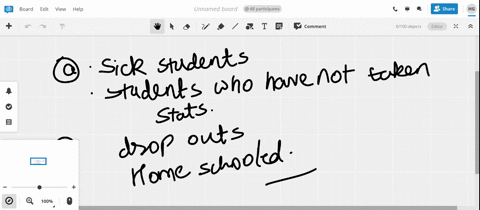 Board Edit View Help
Unnamed board
All participants
Share
HG
Comment
Editor
ⓐ · Sick students
· students who have not taken
stats.
drop outs
Home schooled.
100%